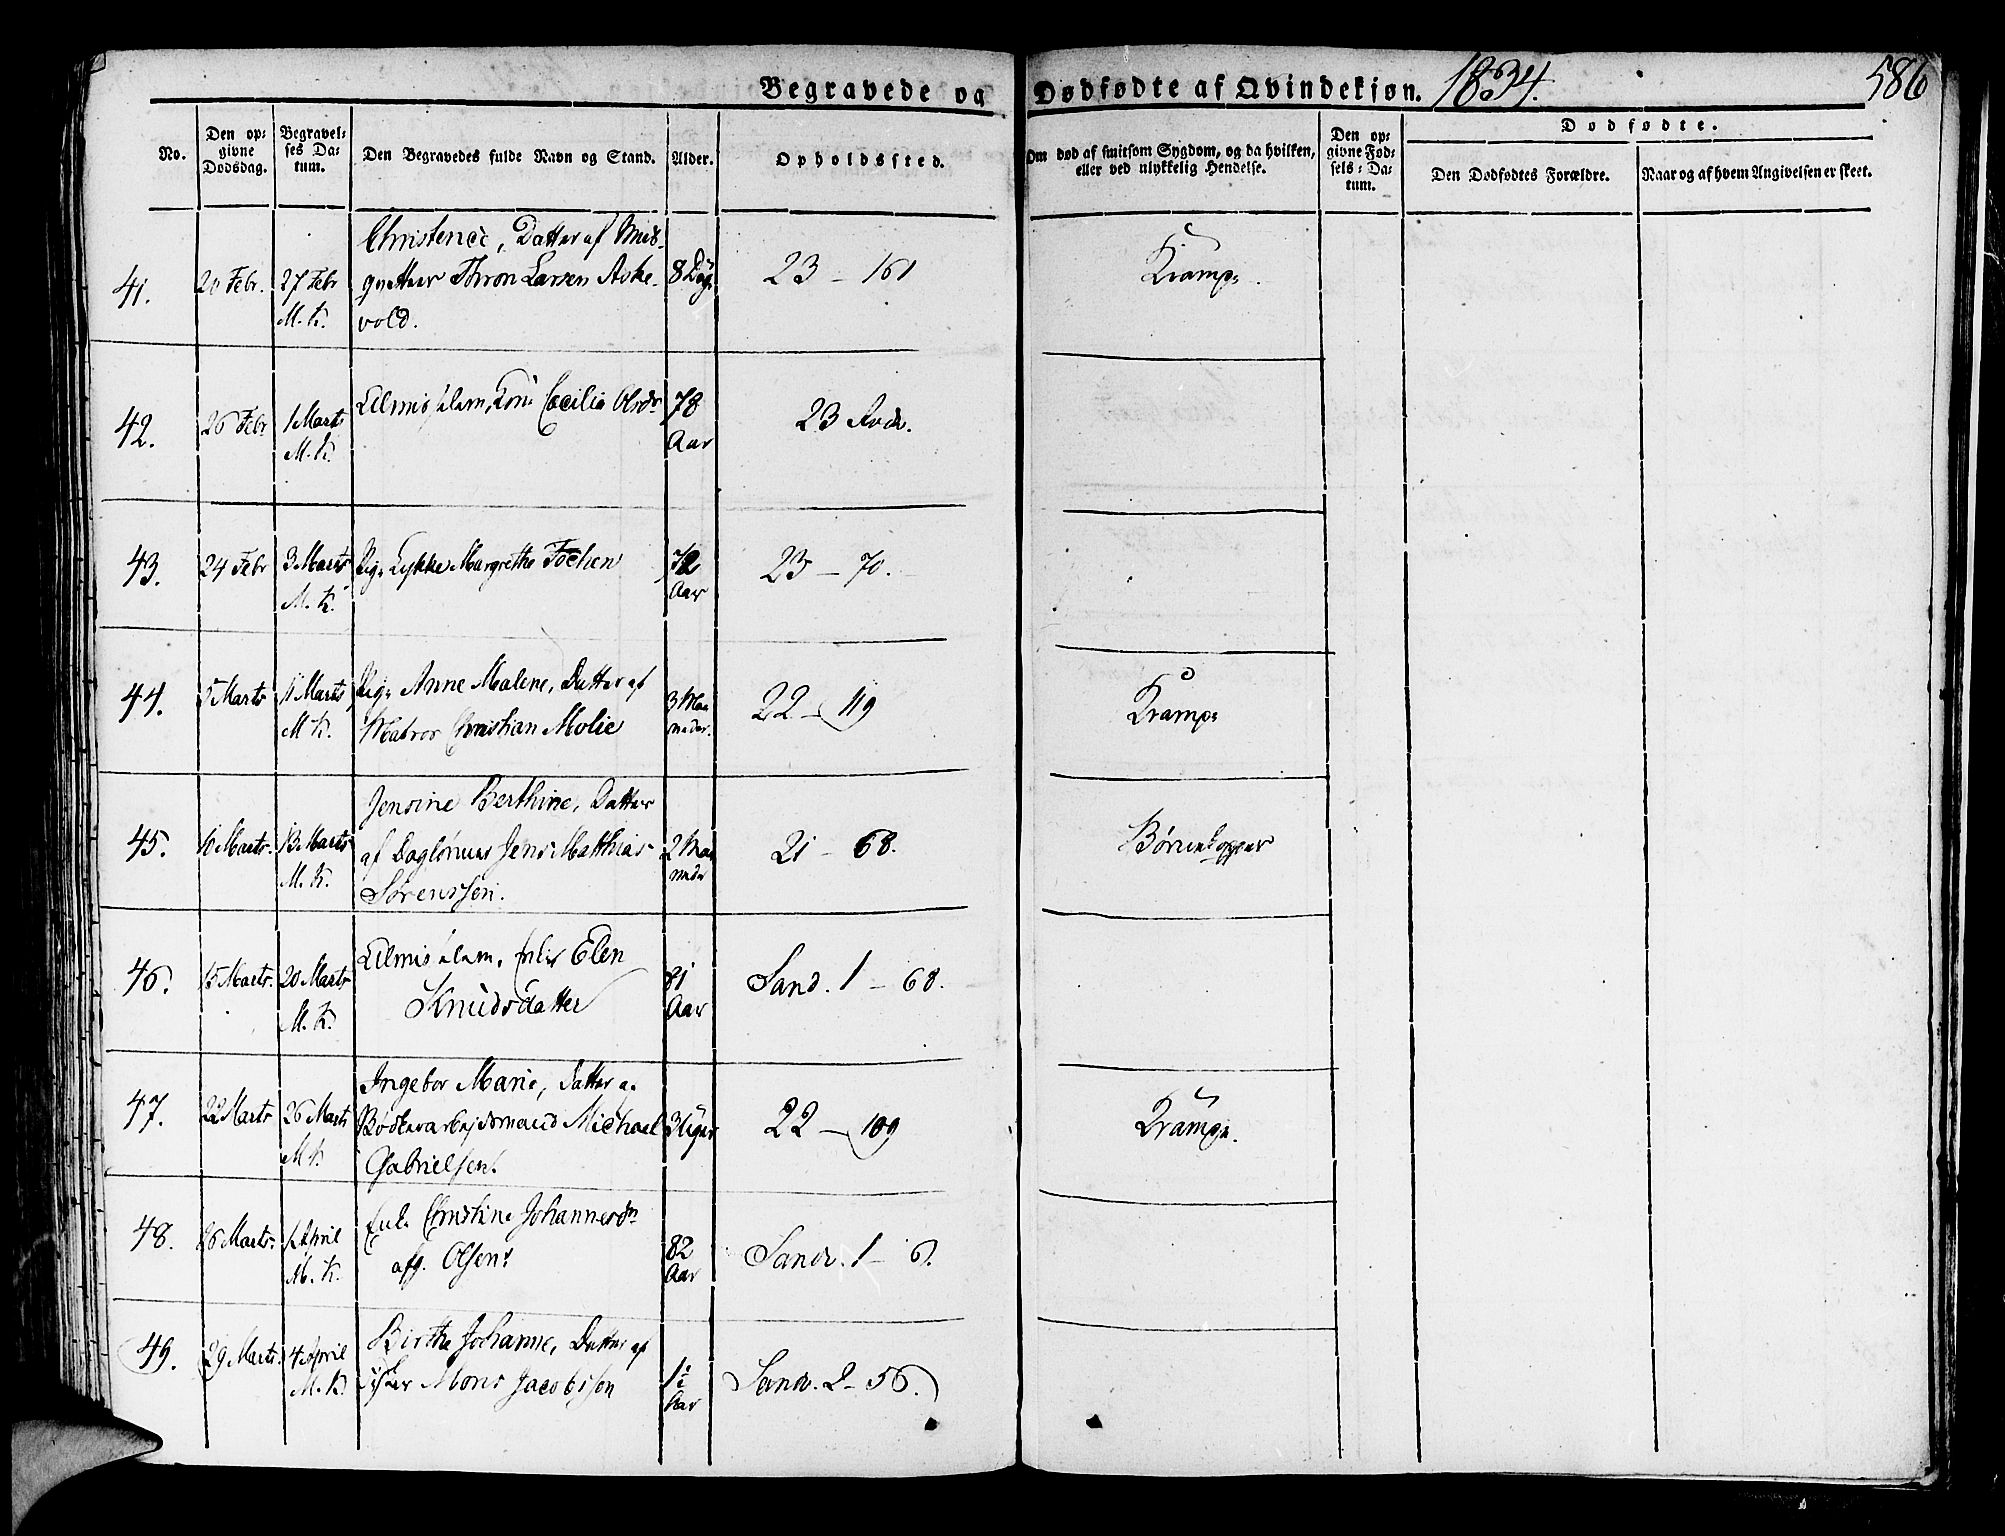 Begravede og Dødfødte af Qvindekjøn. 1834. 586
No.
Den op-
givne
Dødsdag.
Begravel-
ses Da-
tum.
Den Begravedes fulde Navn og Stand.
Alder.
Opholdssted.
Om død af smitsom Sygdom, og da hvilken,
eller ved ulykkelig Hendelse.
Den op-
givne Fød-
sels-Da-
tum.
Dødfødte.
Den Dødfødtes Forældre.
Naar og af hvem Angivelsen er skeet.
Christence, Datter af
41. 20 Febr. 27 Febr Thron Larsen Aske- 8 Dag 23 - 161 Krampe
M. K. vold.
42. 26 Febr 1 Marts Almislem, Kone Cecilia Olsdr 78 23 Rode.
M. K. Aar
43. 24 Febr 3 Marts Pig. Lykke Margrethe Føchen 72 23 - 70.
M. K. Aar
44. 5 Marts 11 Marts Pig. Anne Malene, Datter af 3 Maa 22 - 119 Krampe
M. K. Matros Christian Molie neder.
Jensine Berthine, Datter
45. 10 Marts. 13 Marts af Daglønner Jens Matthias 2 Maa 21 - 68. Børnekopper
M. K. Sørenssen. neder
46. 15 Marts. 20 Marts Almislem, Elen 81 Sand. 1 - 68.
M. K. Knudsdatter Aar
Ingebor Marie, Datter a.
47. 22 Marts 26 Marts Bødkerarbejdsmand Michael 3 Uger 22 - 109 Krampe.
M. K. Gabrielsen.
48. 26 Marts. 1 April Enk. Christine Johannesdr 82 Sandv. 1 - 6.
M. K. afg. Olsen. Aar
Birthe Johanne, Datter af
49. 29 Marts. 4 April Fisker Mons Jacobssen 1½ Sandv. 2 - 56.
M. K. Aar